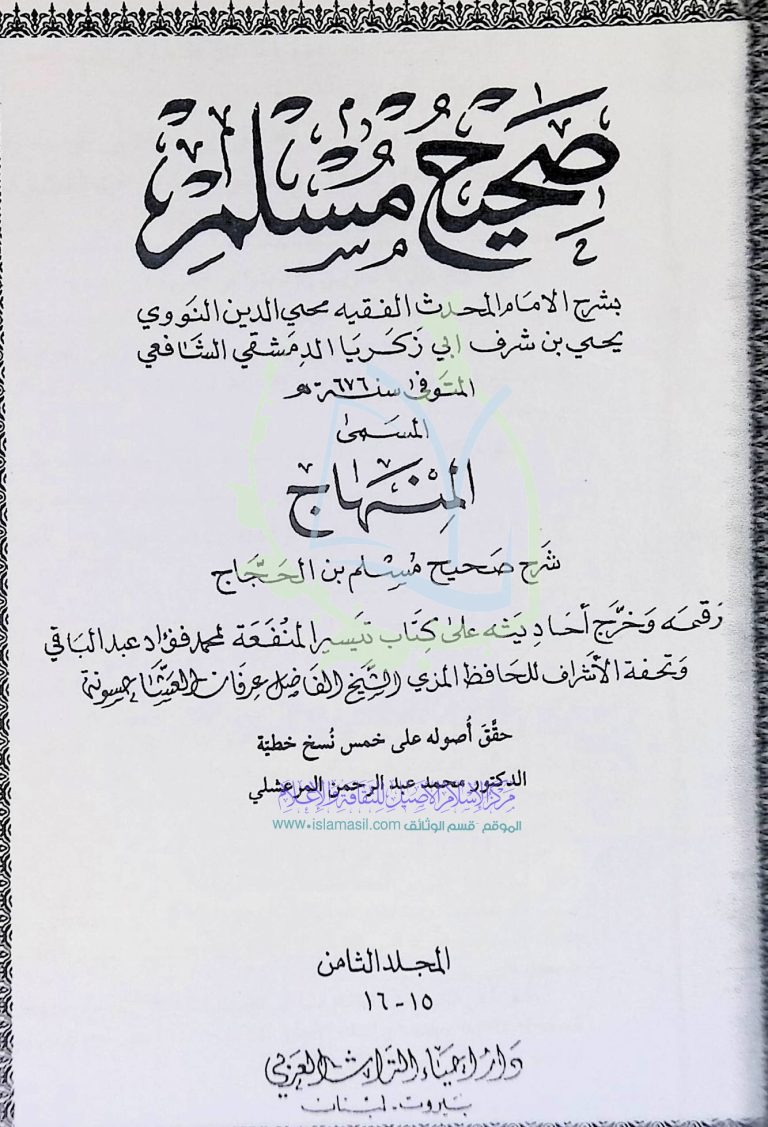 صَحِيحُ مُسْلِمْ
بشرح الامام المحدث الفقيه محيي الدين النووي
يحيي بن شرف ابي زكريا الدمشقي الشافعي
المتوفى سنة ٦٧٦ هـ
المسمى
المِنْهَاج
شَرح صَحيح مُسْلم بن الحَجَّاج
رَقمه وَخرَّج أحَاديثه على كِتَاب تيَسير المنْفَعَة لمحمد فؤاد عبد الباقي
وَتحفة الأشراف للحَافظ المزي الشَّيخ الفَاضِل عِرفَان العَشَّا حسونة
حقَّقَ أُصوله على خمس نُسخ خطيّة
الدكتور محمد عبد الرحمن المرعشلي
مركز الإسلام الأصيل للثقافة والإعلام
الموقع - قسم الوثائق www.islamasil.com
المجلد الثامن
١٥-١٦
دَار إحيَاء التراث العَربي
بَيروت - لبنان